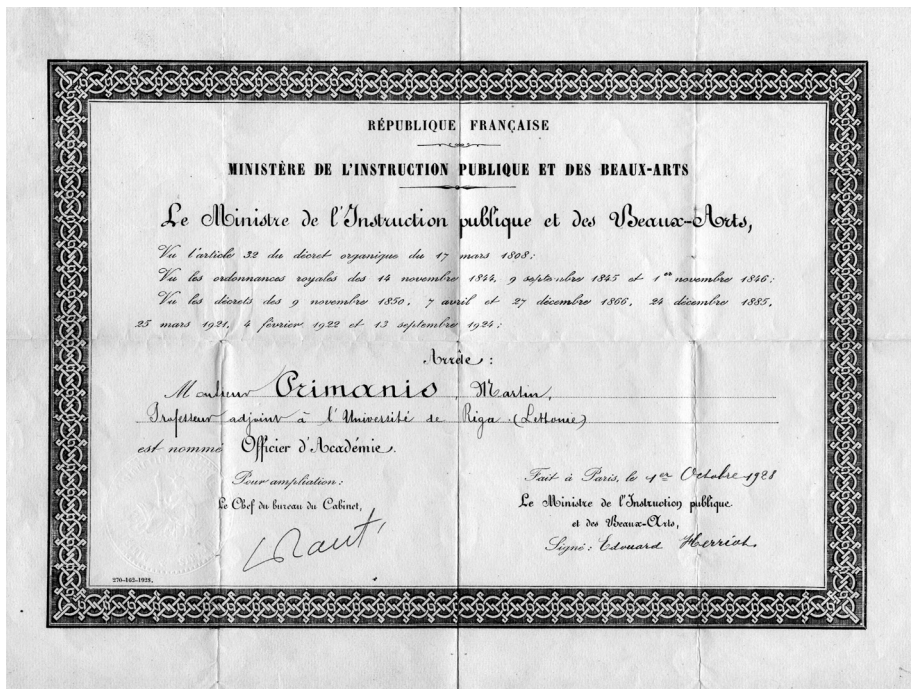 RÉPUBLIQUE FRANÇAISE
MINISTÈRE DE L'INSTRUCTION PUBLIQUE ET DES BEAUX-ARTS
Le Ministre de l'Instruction publique et des Beaux-Arts,
Vu l'article 32 du décret organique du 17 mars 1808;
Vu les ordonnances royales des 14 novembre 1844, 9 septembre 1845 et 1er novembre 1846;
Vu les décrets des 9 novembre 1850, 7 avril et 27 décembre 1866, 24 décembre 1885,
25 mars 1921, 4 février 1922 et 13 septembre 1924;
Arrête:
Monsieur Primanis, Martin,
Professeur adjoint à l'Université de Riga (Lettonie)
est nommé Officier d'Académie.
Pour ampliation:
Le Chef du bureau du Cabinet,
Fait à Paris, le 1er Octobre 1928
Le Ministre de l'Instruction publique
et des Beaux-Arts,
Signé: Edouard Herriot
270-162-1928.